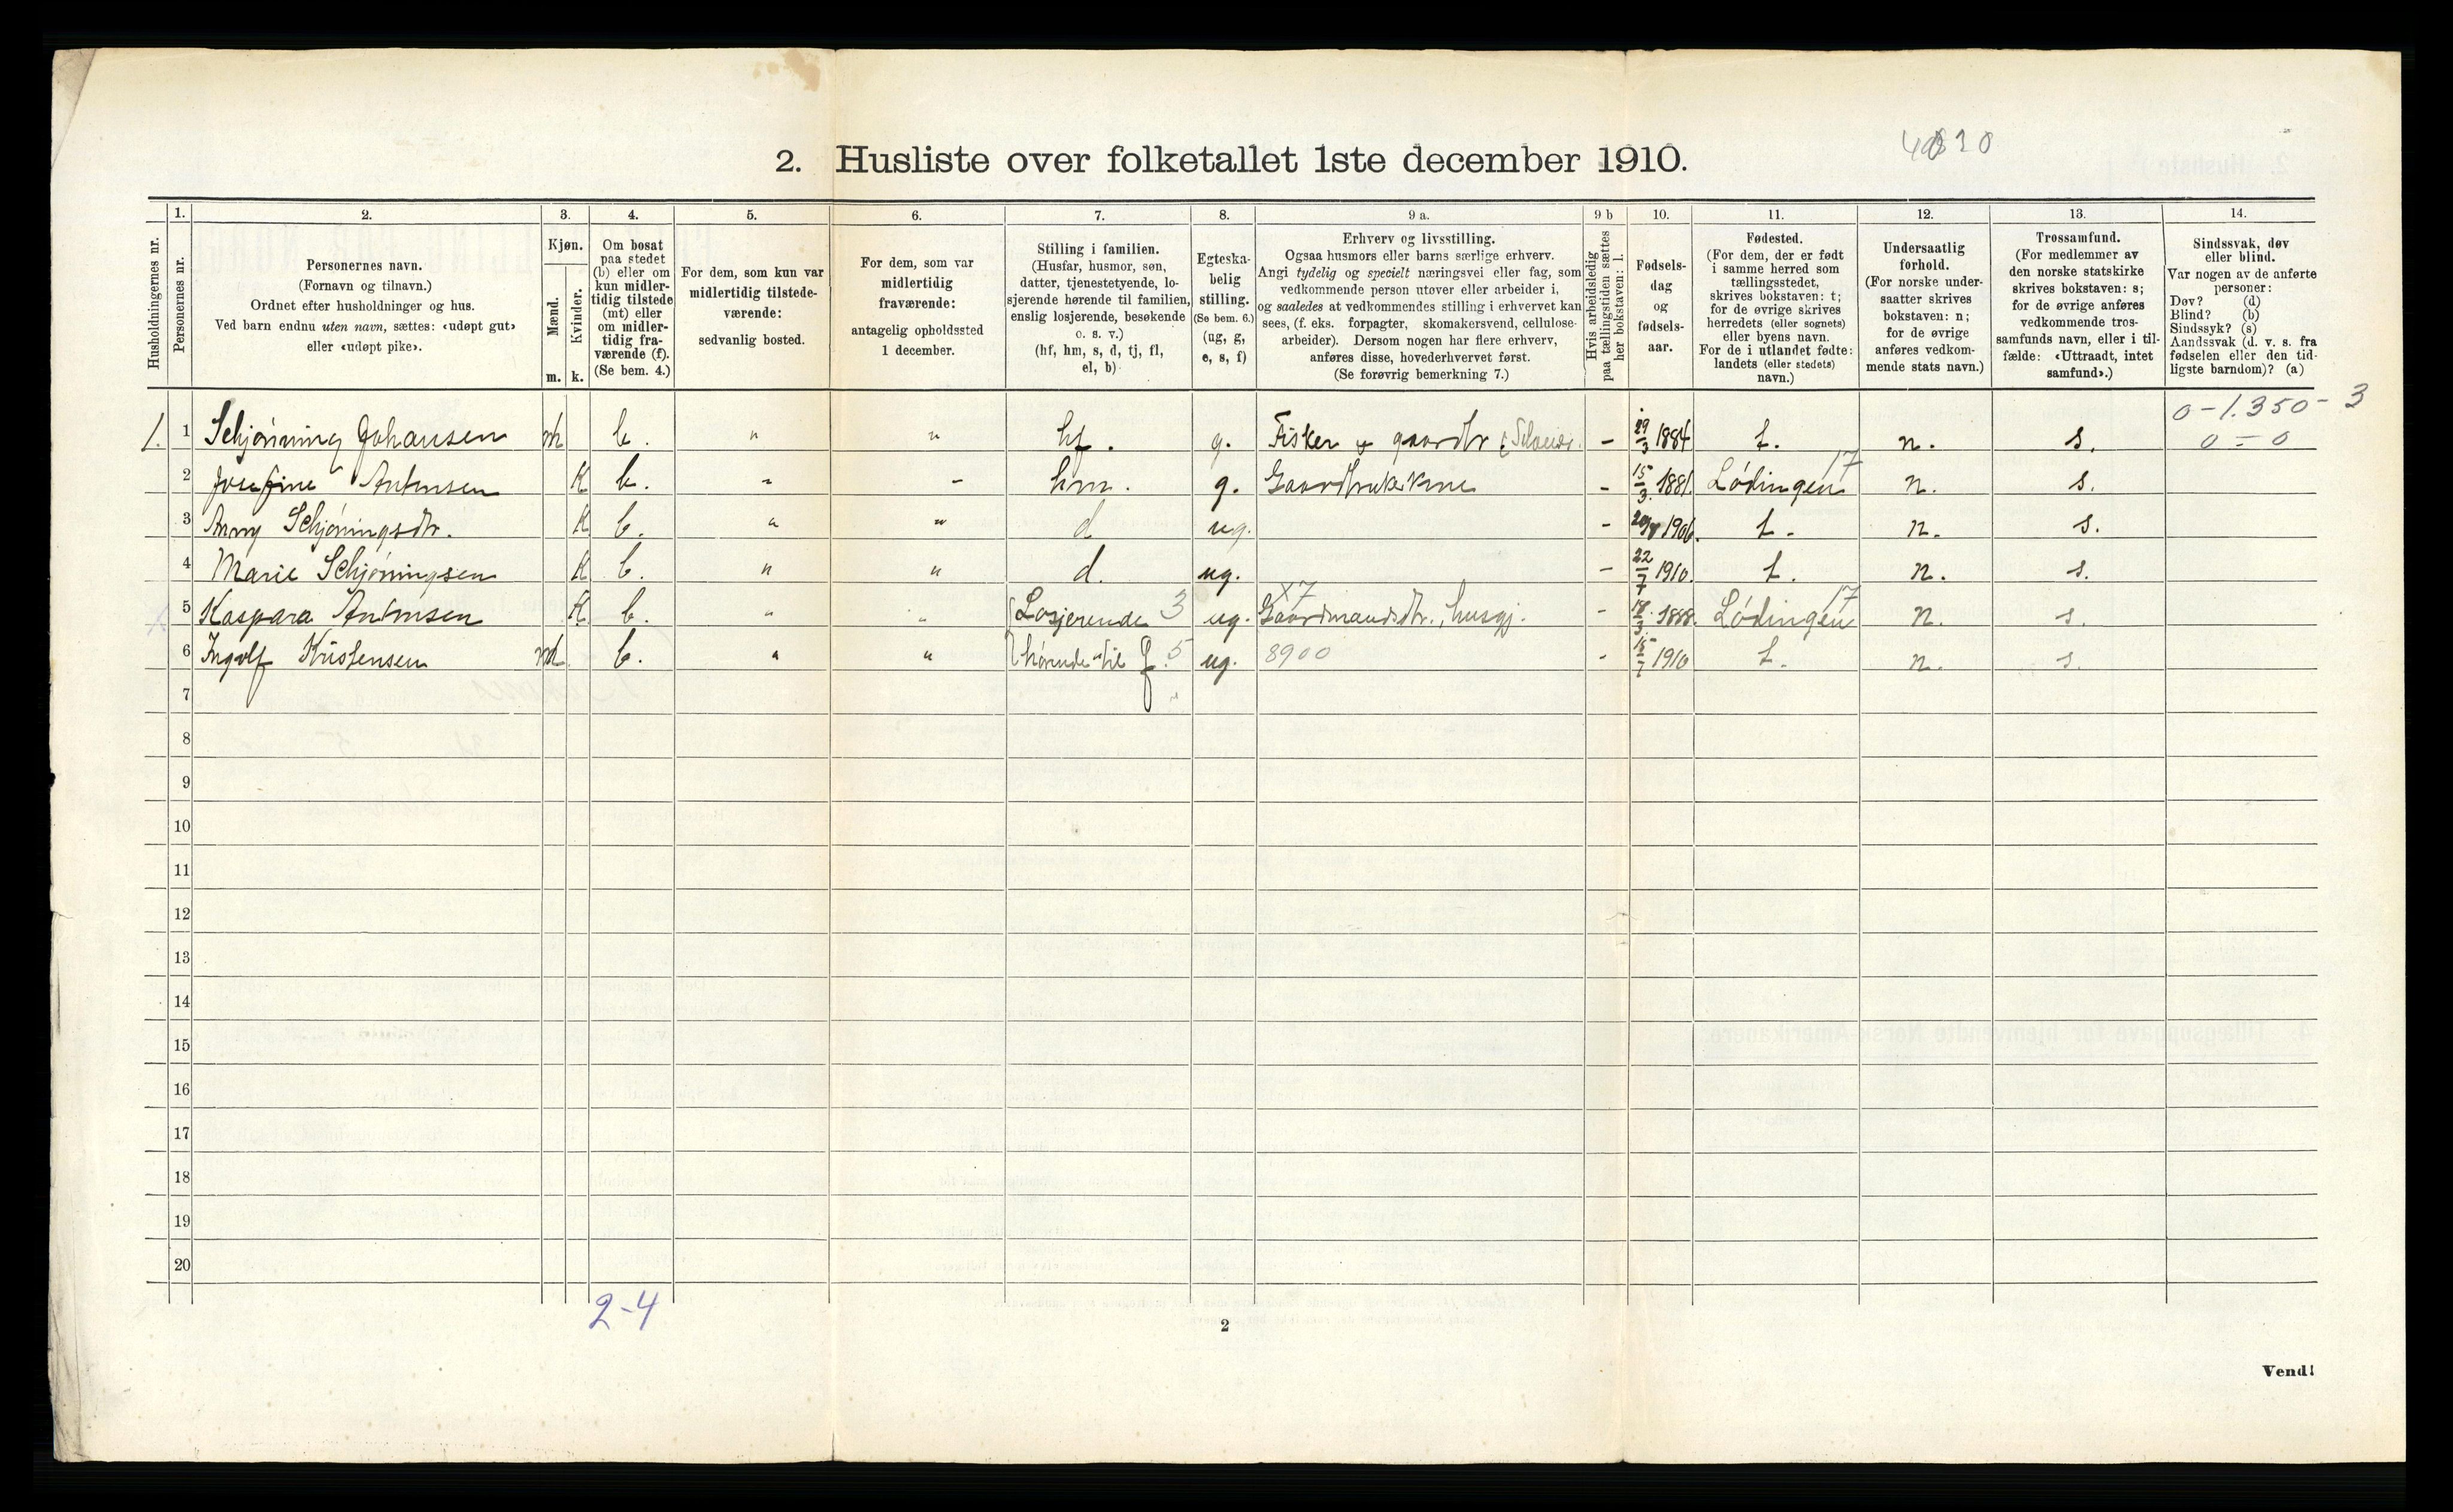 2. Husliste over folketallet 1ste december 1910.
Husholdningernes nr.
1.
Personernes nr.
2.
Personernes navn.
(Fornavn og tilnavn.)
Ordnet efter husholdninger og hus.
Ved barn endnu uten navn, sættes: «udøpt gut»
eller «udøpt pike».
3.
Kjøn.
Mænd.
Kvinder.
m. k.
4.
Om bosat
paa stedet
(b) eller om
kun midler-
tidig tilstede
(mt) eller
om midler-
tidig fra-
værende (f).
(Se bem. 4.)
5.
For dem, som kun var
midlertidig tilstede-
værende:
sedvanlig bosted.
6.
For dem, som var
midlertidig
fraværende:
antagelig opholdssted
1 december.
7.
Stilling i familien.
(Husfar, husmor, søn,
datter, tjenestetyende, lo-
sjerende hørende til familien,
enslig losjerende, besøkende
o. s. v.)
(hf, hm, s, d, tj, fl,
el, b)
8.
Egteska-
belig
stilling.
(Se bem. 6.)
(ug, g,
e, s, f)
9 a.
Erhverv og livsstilling.
Ogsaa husmors eller barns særlige erhverv.
Angi tydelig og specielt næringsvei eller fag, som
vedkommende person utøver eller arbeider i,
og saaledes at vedkommendes stilling i erhvervet kan
sees, (f. eks. forpagter, skomakersvend, cellulose-
arbeider). Dersom nogen har flere erhverv,
anføres disse, hovederhvervet først.
(Se forøvrig bemerkning 7.)
9 b
Hvis arbeidsledig
paa tællingstiden sættes
her bokstaven: l.
10.
Fødsels-
dag
og
fødsels-
aar.
11.
Fødested.
(For dem, der er født
i samme herred som
tællingsstedet,
skrives bokstaven: t;
for de øvrige skrives
herredets (eller sognets)
eller byens navn.
For de i utlandet fødte:
landets (eller stedets)
navn.)
12.
Undersaatlig
forhold.
(For norske under-
saatter skrives
bokstaven: n;
for de øvrige
anføres vedkom-
mende stats navn.)
13.
Trossamfund.
(For medlemmer av
den norske statskirke
skrives bokstaven: s;
for de øvrige anføres
vedkommende tros-
samfunds navn, eller i til-
fælde: «Uttraadt, intet
samfund».)
14.
Sindssvak, døv
eller blind.
Var nogen av de anførte
personer:
Døv? (d)
Blind? (b)
Sindssyk? (s)
Aandssvak (d. v. s. fra
fødselen eller den tid-
ligste barndom)? (a)
0-1.350-3
1. 1 Schjønning Johansen m b. " " hf. g. Fisker gaardbr - 29/3 1884 t. n. s. 0 = 0
2 Josefine Antonsen K b. " - hm. g. - 15/3 1881. Lødingen 17 n. s.
3 Anny Schjøningsdtr. K b. " " d ug. - 1906. t. n. s.
4 Marie Schjøningsen K b. " " d. ug. - 22/7 1910. t. n. s.
5 Kaspara Antonsen K b. " " Losjerende 3 ug. Gaardmandsdtr., husgj. X7 - 18/3 1888. Lødingen 17 n. s.
6 Ingolf Kristensen m b. " " hørende til f 5 ug. 8900 - 15/7 1910 t. n. s.
7
8
9
10
11
12
13
14
15
16
17
18
19
20
2-4
2
Vend!